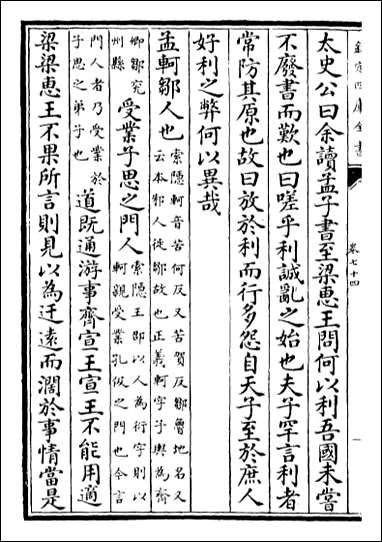 欽定四庫全書
卷七十四
一
太史公曰余讀孟子書至梁惠王問何以利吾國未嘗
不廢書而歎也曰嗟乎利誠亂之始也夫子罕言利者
常防其原也故曰放於利而行多怨自天子至於庶人
好利之弊何以異哉
孟軻鄒人也索隱軻音苦何反又苦賀反鄒魯地名又
云本邾人徙鄒故也正義軻字子輿為齊
卿鄒兖
州縣
受業子思之門人索隱王劭以人為衍字則以
軻親受業孔伋之門也今言
門人者乃受業於
子思之弟子也
道既通游事齊宣王宣王不能用適
梁梁惠王不果所言則見以為迂遠而濶於事情當是